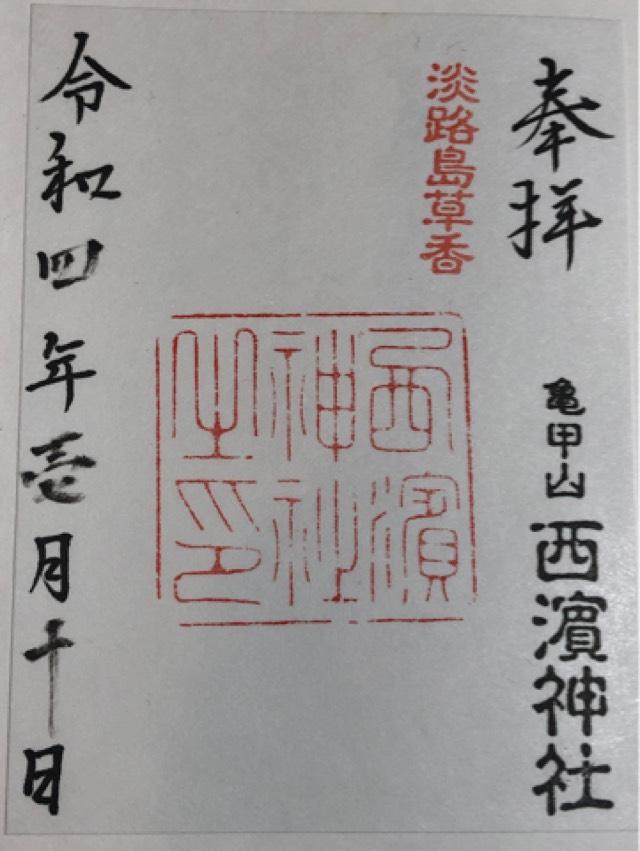 奉拝
亀甲山西濱神社
淡路島草香
西濱
神社
之印
令和四年壱月十日